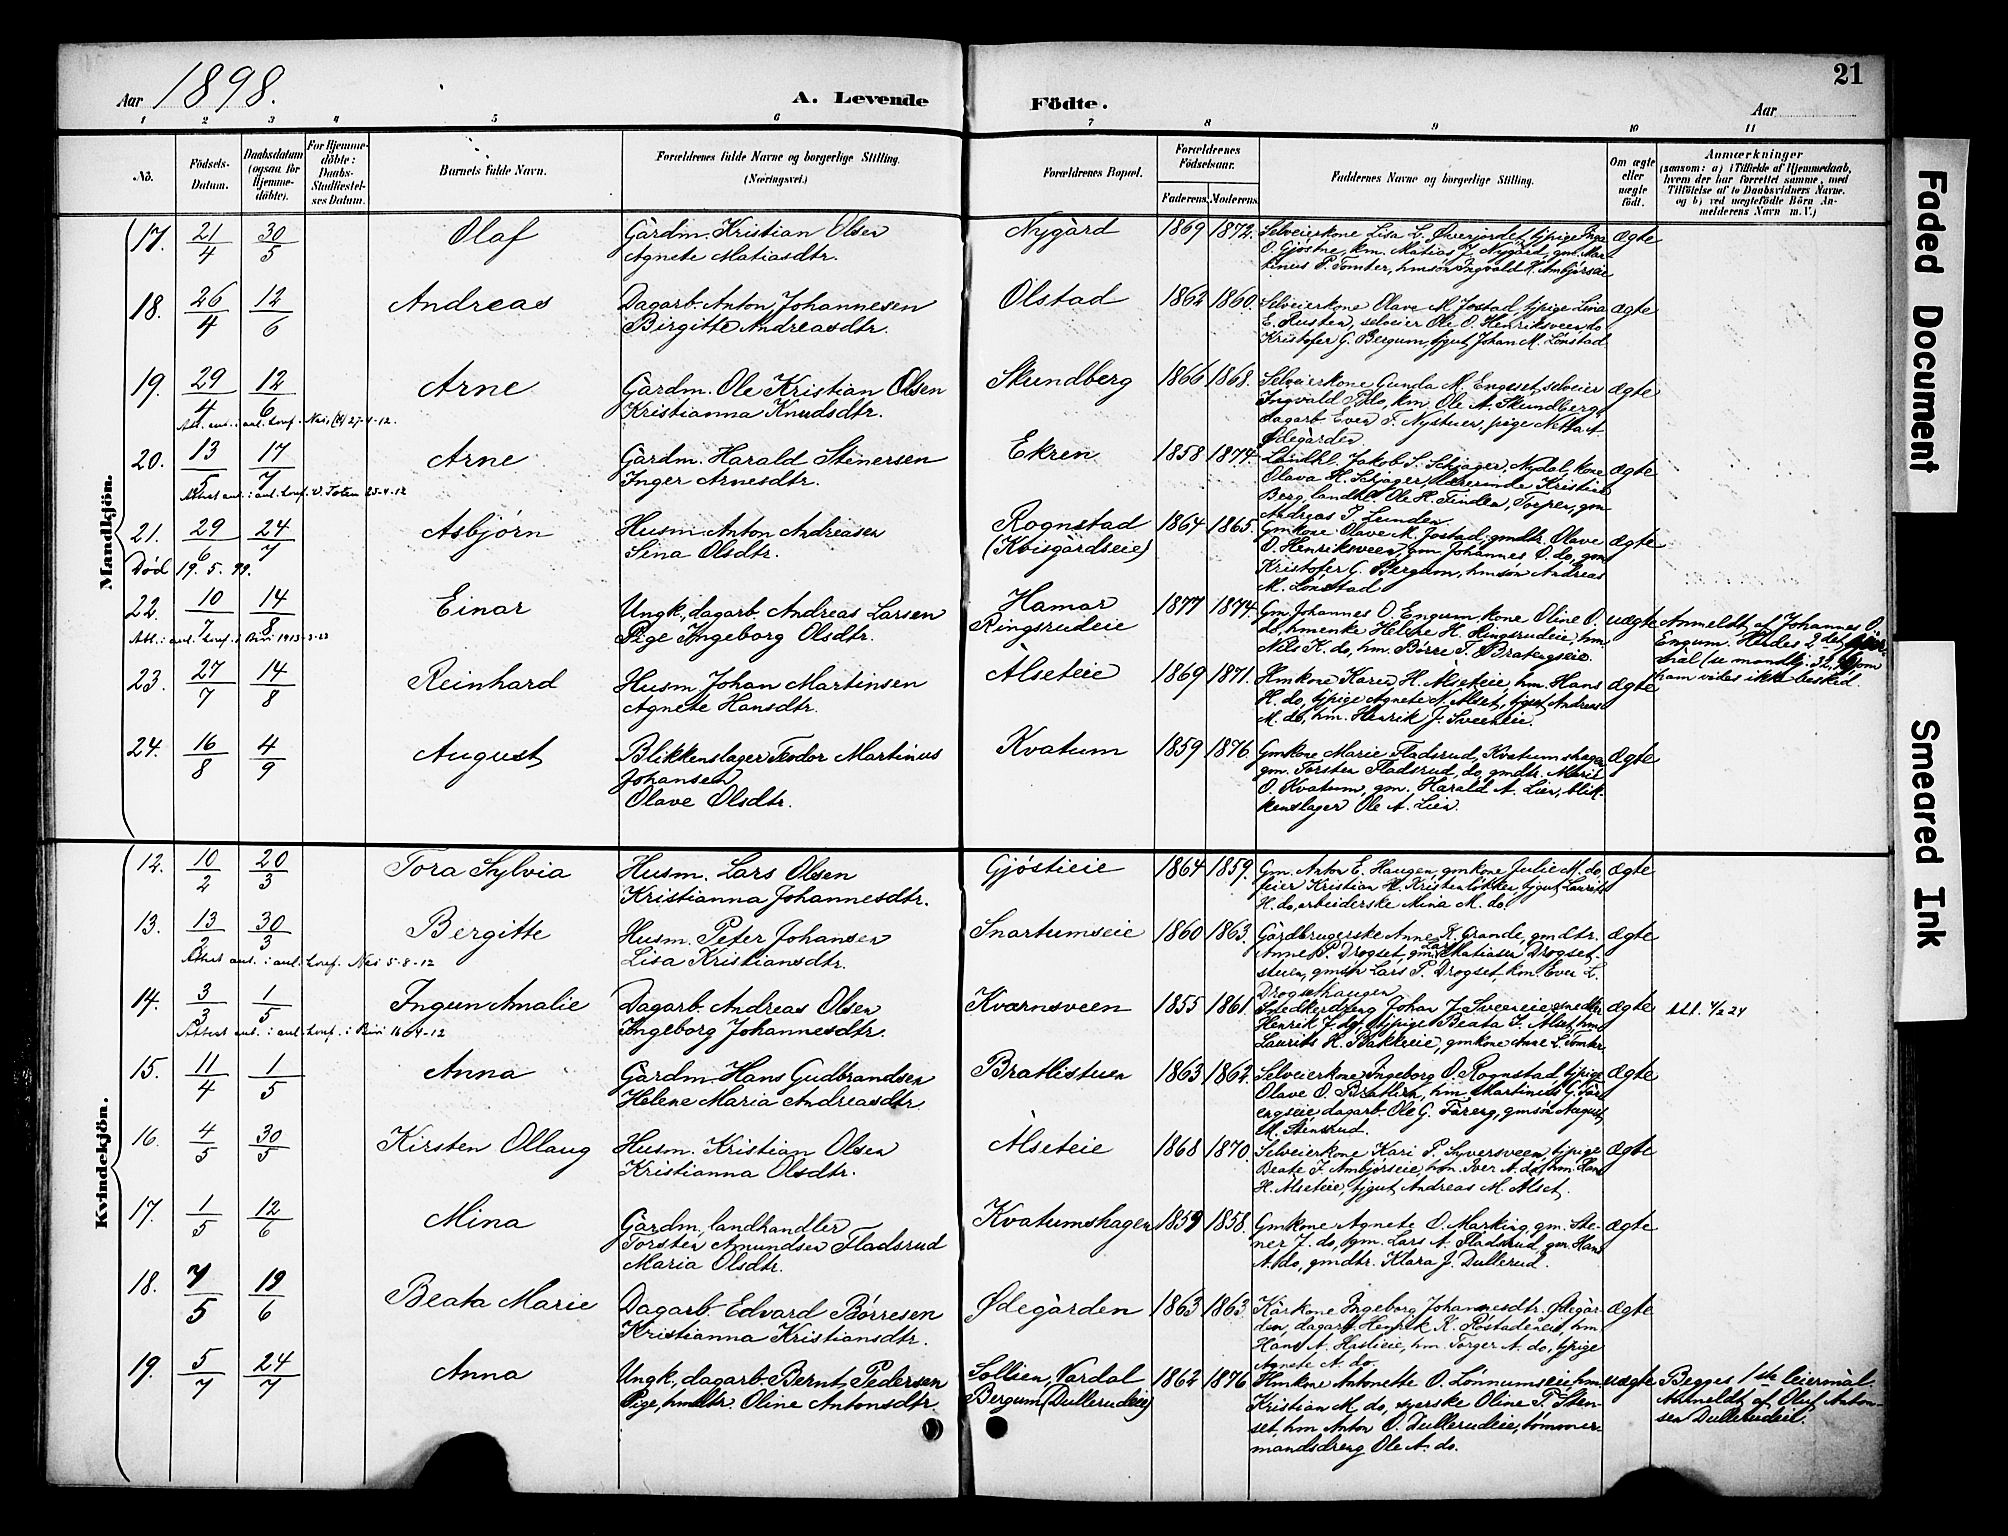 Aar 1898.
A. Levende Födte.
Aar
21
1 2 3 4 5 6 7 8 9 10 11
No.
Födsels-Datum.
Daabsdatum (ogsaa for Hjemme-döbte).
For Hjemme-döbte: Daabs-Stadfæstel-ses Datum.
Barnets fulde Navn.
Forældrenes fulde Navne og borgerlige Stilling. (Næringsvei.)
Forældrenes Bopæl.
Forældrenes Födselsaar.
Faderens. Moderens.
Faddernes Navne og borgerlige Stilling.
Om ægte eller uægte födt.
Anmærkninger
(saasom: a) i Tilfælde af Hjemmedaab, hvem der har forrettet samme, med Tilföielse af to Daabsvidners Navne, og b) ved uægtefödte Börn Anmelderens Navn m. V.)
Mandkjön.
17. 21/4 30/5 Olaf
Gårdm. Kristian Olsen
Agnete Matiasdtr.
Nygård 1869 1872.
Selveierkone Lisa L. Øverjordet, tjpige Inga
O. Gjøstne, km. Matias J. Nygård, gm. Mar-
tinius P. Tomter, hmsøn Ingvald H. Ambjørseie
ægte
18. 26/4 12/6 Andreas
Dagarb. Anton Johannesen
Birgitte Andreasdtr.
Olstad 1862 1860.
Selveierkone Olave M. Jostad, tjpige Lina
E. Rusten, selveier Ole O. Henriksveen, do
Kristofer G. Bergum, tjgut Johan M. Lønstad
ægte
19. 29/4 12/6 Arne
Gårdm. Ole Kristian Olsen
Kristianna Knudsdtr.
Skundberg 1866 1868.
Selveierkone Gunda M. Engeset, selveier
Ingvald P. do, km. Ole A. Skundberg,
dagarb. Even T. Nystuen, pige Netta A.
Ødegården
ægte
20. 13/5 17/7 Arne
Gårdm. Harald Stenersen
Inger Arnesdtr.
Ekren 1858 1874.
Landhl. Jakob S. Schjager, Nydal, kone
Olava H. Schjager, lærerinde Kristine
Berg, landhl. Ole H. Finden, Torpen, gm.
Andreas J. Lunden
ægte
21. 29/6 24/7 Asbjørn
Død 19. 5. 99.
Husm. Anton Andreasen
Lina Olsdtr.
Rognstad
(Kvisgårdseie)
1864 1865.
Gmkone Olave M. Jostad, gmdtr. Olave
O. Henriksveen, gm. Johannes O. do, gm.
Kristofer G. Bergum, hmsøn Andreas
M. Lønstad
ægte
22. 10/7 14/8 Einar
Ungk., dagarb. Andreas Larsen
Pige Ingeborg Olsdtr.
Hamar
Ringsrudeie
1877 1874.
Gm. Johannes O. Engum, kone Oline O.
do, hmenke Helene H. Ringsrudeie, hm.
Nils K. do, hm. Børre T. Bratengseie.
uægte
Anmeldt af Johannes O.
Engum. Hendes 2det
ham vides ikke besked.
23. 27/7 14/8 Reinhard
Husm. Johan Martinsen
Agnete Hansdtr.
Ålseteie 1869 1871.
Hmkone Karen H. Alseteie, hm. Hans
H. do, tjpige Agnete M. Alset, tjgut Andreas
M. do, hm. Henrik J. Sveeneie.
ægte
24. 16/8 4/9 August
Blikkenslager Teodor Martinus
Johansen
Olave Olsdtr.
Kvatum 1859 1876
Gmkone Marie Fladsrud, Kvatumshagen,
gm. Torsten Fladsrud, do, gmdtr. Marit
O. Kvatum, gm. Harald A. Lien, blik-
kenslager Ole A. Lien.
ægte
Kvindekjön.
12. 10/2 20/3 Tora Sylvia
Husm. Lars Olsen
Kristianna Johannesdtr.
Gjøstieie 1864 1859.
Gm. Anton E. Haugen, gmkone Julie M. do,
feier Kristian H. Kristenløkken, tjgut Laurits
H. do, arbeiderske Mina M. do.
ægte
13. 13/2 30/3 Bergitte
Husm. Peter Johansen
Lisa Kristiansdtr.
Snartumseie 1860 1863.
Gårdbrugerske Anne K. Grande, gmdtr.
Anne P. Drogset, gm. Lars Matiasen Drogset-
stuen, gmsøn Lars P. Drogset, km. Even L.
Drogsethaugen
ægte
14. 3/3 1/5 Ingun Amalie
Dagarb. Andreas Olsen
Ingeborg Johannesdtr.
Kværnsveen 1855 1861.
Snedkerdreng Johan J. Sveeneie, snedker
Henrik J. do, tjpige Beata J. Alset, hm.
Laurits H. Bakkeeie, gmkone Anne L. Tomter
ægte
15. 11/4 1/5 Anna
Gårdm. Hans Gudbrandsen
Helene Maria Andreasdtr.
Bratlistuen 1863 1862.
Selveierkone Ingeborg O. Rognstad, tjpige
Olave O. Bratlien, hm. Martinius G. Fær-
engseie, dagarb. Ole G. Færeng, gmsøn August
M. Stensrud.
ægte
16. 4/5 30/5 Kirsten Ollaug
Husm. Kristian Olsen
Kristianna Olsdtr.
Ålseteie 1868 1870
Selveierkone Kari P. Syversveen, tjpige
Beate J. Ambjørseie, hm. Iver A. do, hm. Hans
H. Alseteie, tjgut Andreas M. Alset.
ægte
17. 1/5 12/6 Mina
Gårdm., landhandler
Torsten Amundsen Fladsrud
Maria Olsdtr.
Kvatumshagen 1859 1858.
Gmkone Agnete O. Marking, gm. Ste-
ner J. do, gm. Lars A. Fladsrud, gm. Hans
A. do, gmdtr. Klara J. Dullerud.
ægte
18. 7/5 19/6 Beata Marie
Dagarb. Edvard Børresen
Kristianna Kristiansdtr.
Ødegården 1863 1863.
Kårkone Ingeborg Johannesdtr. Ødegår-
den, dagarb. Henrik K. Røstadeneie, hm.
Hans A. Hastieie, hm. Torger A. do, tjpige
Agnete A. do.
ægte
19. 5/7 24/7 Anna
Ungk., dagarb. Bernt Pedersen
Pige, hmdtr. Oline Antonsdtr.
Sollien, Vardal
Bergum (Dullerudeie)
1862 1876
Hmkone Antonette O. Lønnumseie, hm.
Kristian M. do, syerske Oline P. Sten-
set, hm. Anton O. Dullerudeie, tømmer-
mandsdreng Ole A. do.
uægte
Begges 1ste leiermål.
Anmeldt af Oluf Anton-
sen Dullerudeie.
Faded Document
Smeared Ink